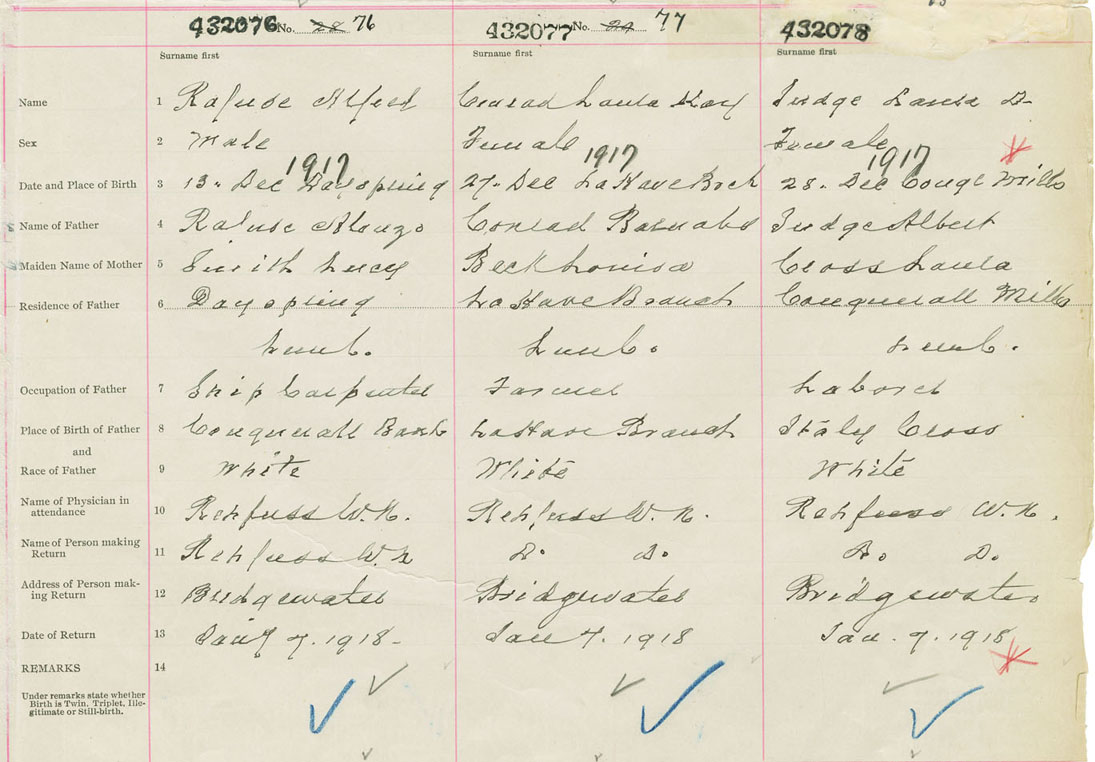 432076 No. 28 76 432077 No. 29 77 432078
Surname first Surname first Surname first
Name 1 Rafuse Alfred Conrad Laula Judge D-
Sex 2 Male Female Female
1917 1917 1917
Date and Place of Birth 3 13. Dec Dayspring 27. Dec LaHave Brch 28. Dec Conq Mills
Name of Father 4 Rafuse Alonzo Conrad Barnabs Judge Albert
Maiden Name of Mother 5 Smith Lucey Beck Lovisa Cross Laula
Residence of Father 6 Dayspring LaHave Branch Conquerall Mills
Lunb. Lunb. Lunb.
Occupation of Father 7 Ship Carpenter Farmer Laborer
Place of Birth of Father 8 Conquerall Bank LaHave Branch Italy Cross
and
Race of Father 9 White White White
Name of Physician in
attendance 10 Rehfuss W.H. Rehfuss W. H. Rehfuss W.H.
Name of Person making
Return 11 Rehfuss W.H D. D. D. D.
Address of Person mak-
ing Return 12 Bridgewater Bridgewater Bridgewater
Date of Return 13 Jany 7. 1918- Jan 7. 1918 Jan. 7. 1918
REMARKS 14
Under remarks state whether
Birth is Twin, Triplet, Ille-
gitimate or Still-birth.